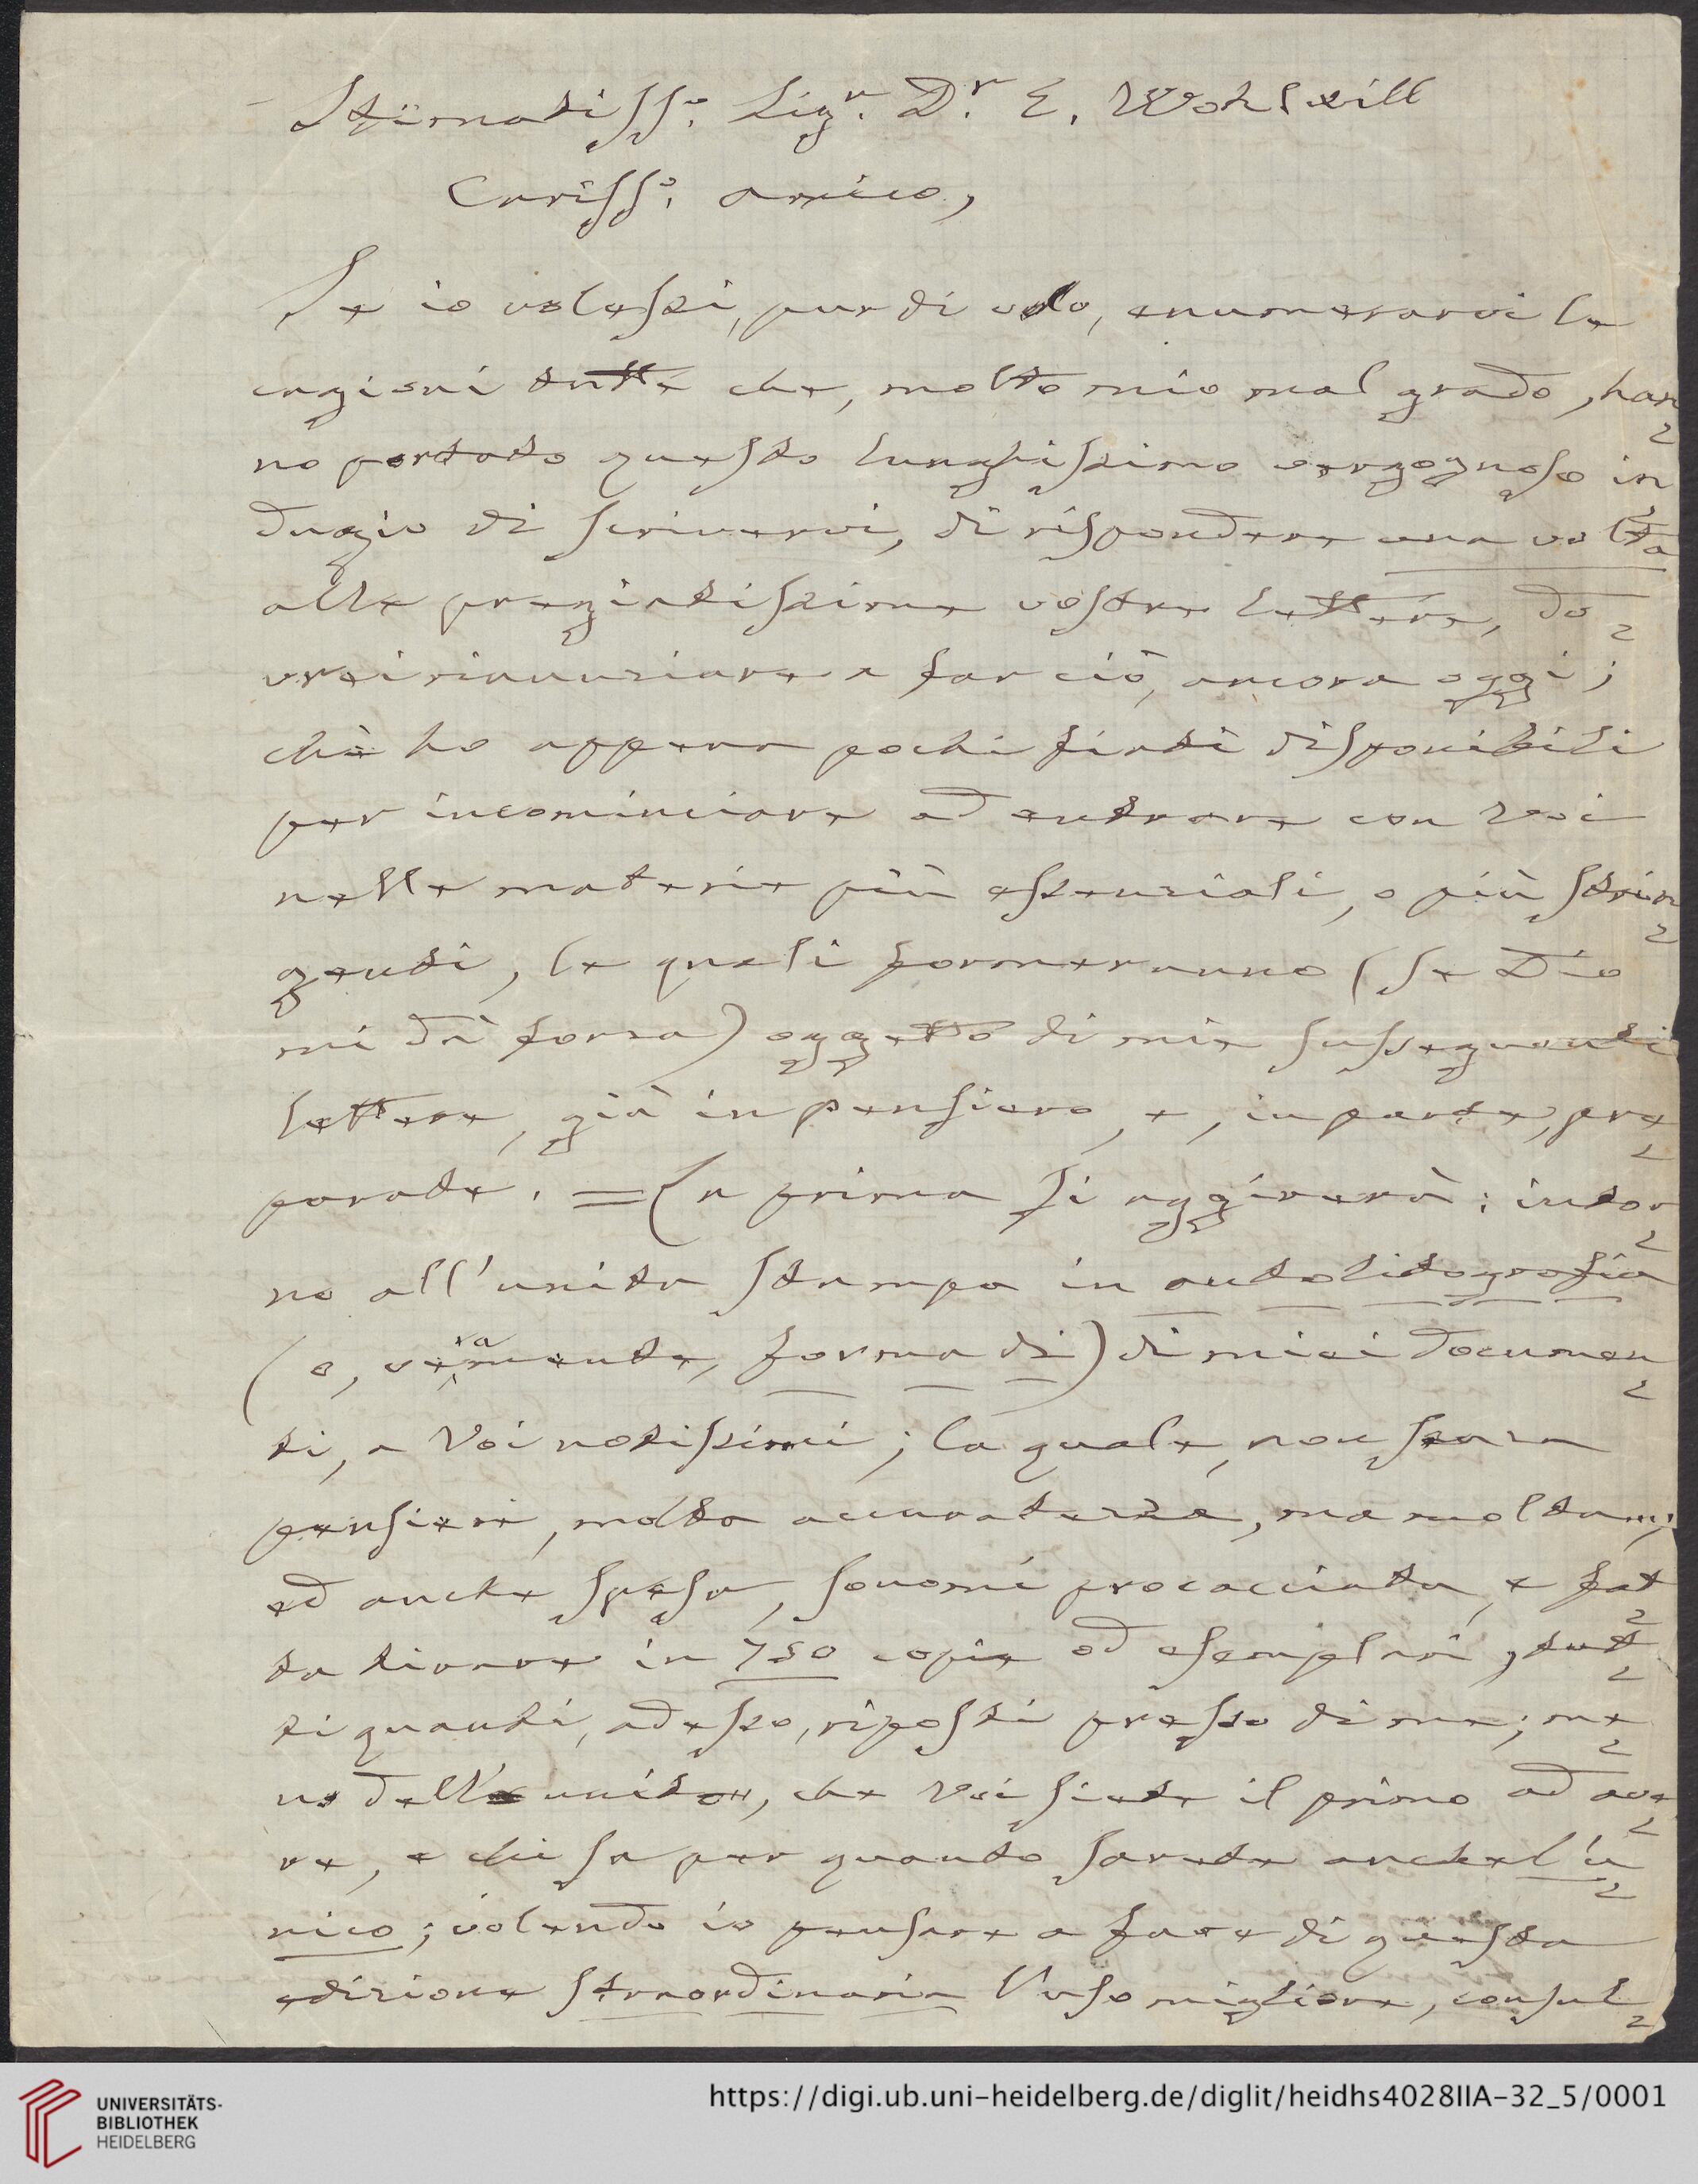 Stimatiss.º Sigr. Dr. E. Wohlwill
Cariss.º amico,
Se io volessi, pur di volo, enumerarvi le
cagioni tutte che, molto mio mal grado, han=
no portato questo lunghissimo vergognoso in=
dugio di scrivervi, di rispondere una volta
alle pregiatissime vostre lettere, do=
vrei rinunziare a far ciò, ancora oggi;
chè ho appena pochi fiati disponibili
per incominciare ad entrare con Voi
nelle materie più essenziali, o più strin=
genti, le quali formeranno (se Dio
mi dà forza) oggetto di mie susseguenti
lettere, già in pensiero, e, in parte, pre=
parate. = La prima si aggirerà: intor=
no all'unita stampa in autolitografia
(o, veramente, forma di) di miei documen=
ti, a Voi notissimi; la quale, non senza
pensieri, molta accuratezza, ma molta...;
ed anche spesa, sonomi procacciata, e fat=
ta tirare in 750 copie od esemplari, tut=
ti quanti, adesso, riposti presso di me; me=
no dell'unito, che Voi siete il primo ad ave=
re, e chi sa per quanto sarete anche l'u=
nico; volendo io pensare a fare di questa
edizione straordinaria l'uso migliore, consul=
UNIVERSITÄTS-
BIBLIOTHEK
HEIDELBERG
https://digi.ub.uni-heidelberg.de/diglit/heidhs4028IIA-32_5/0001